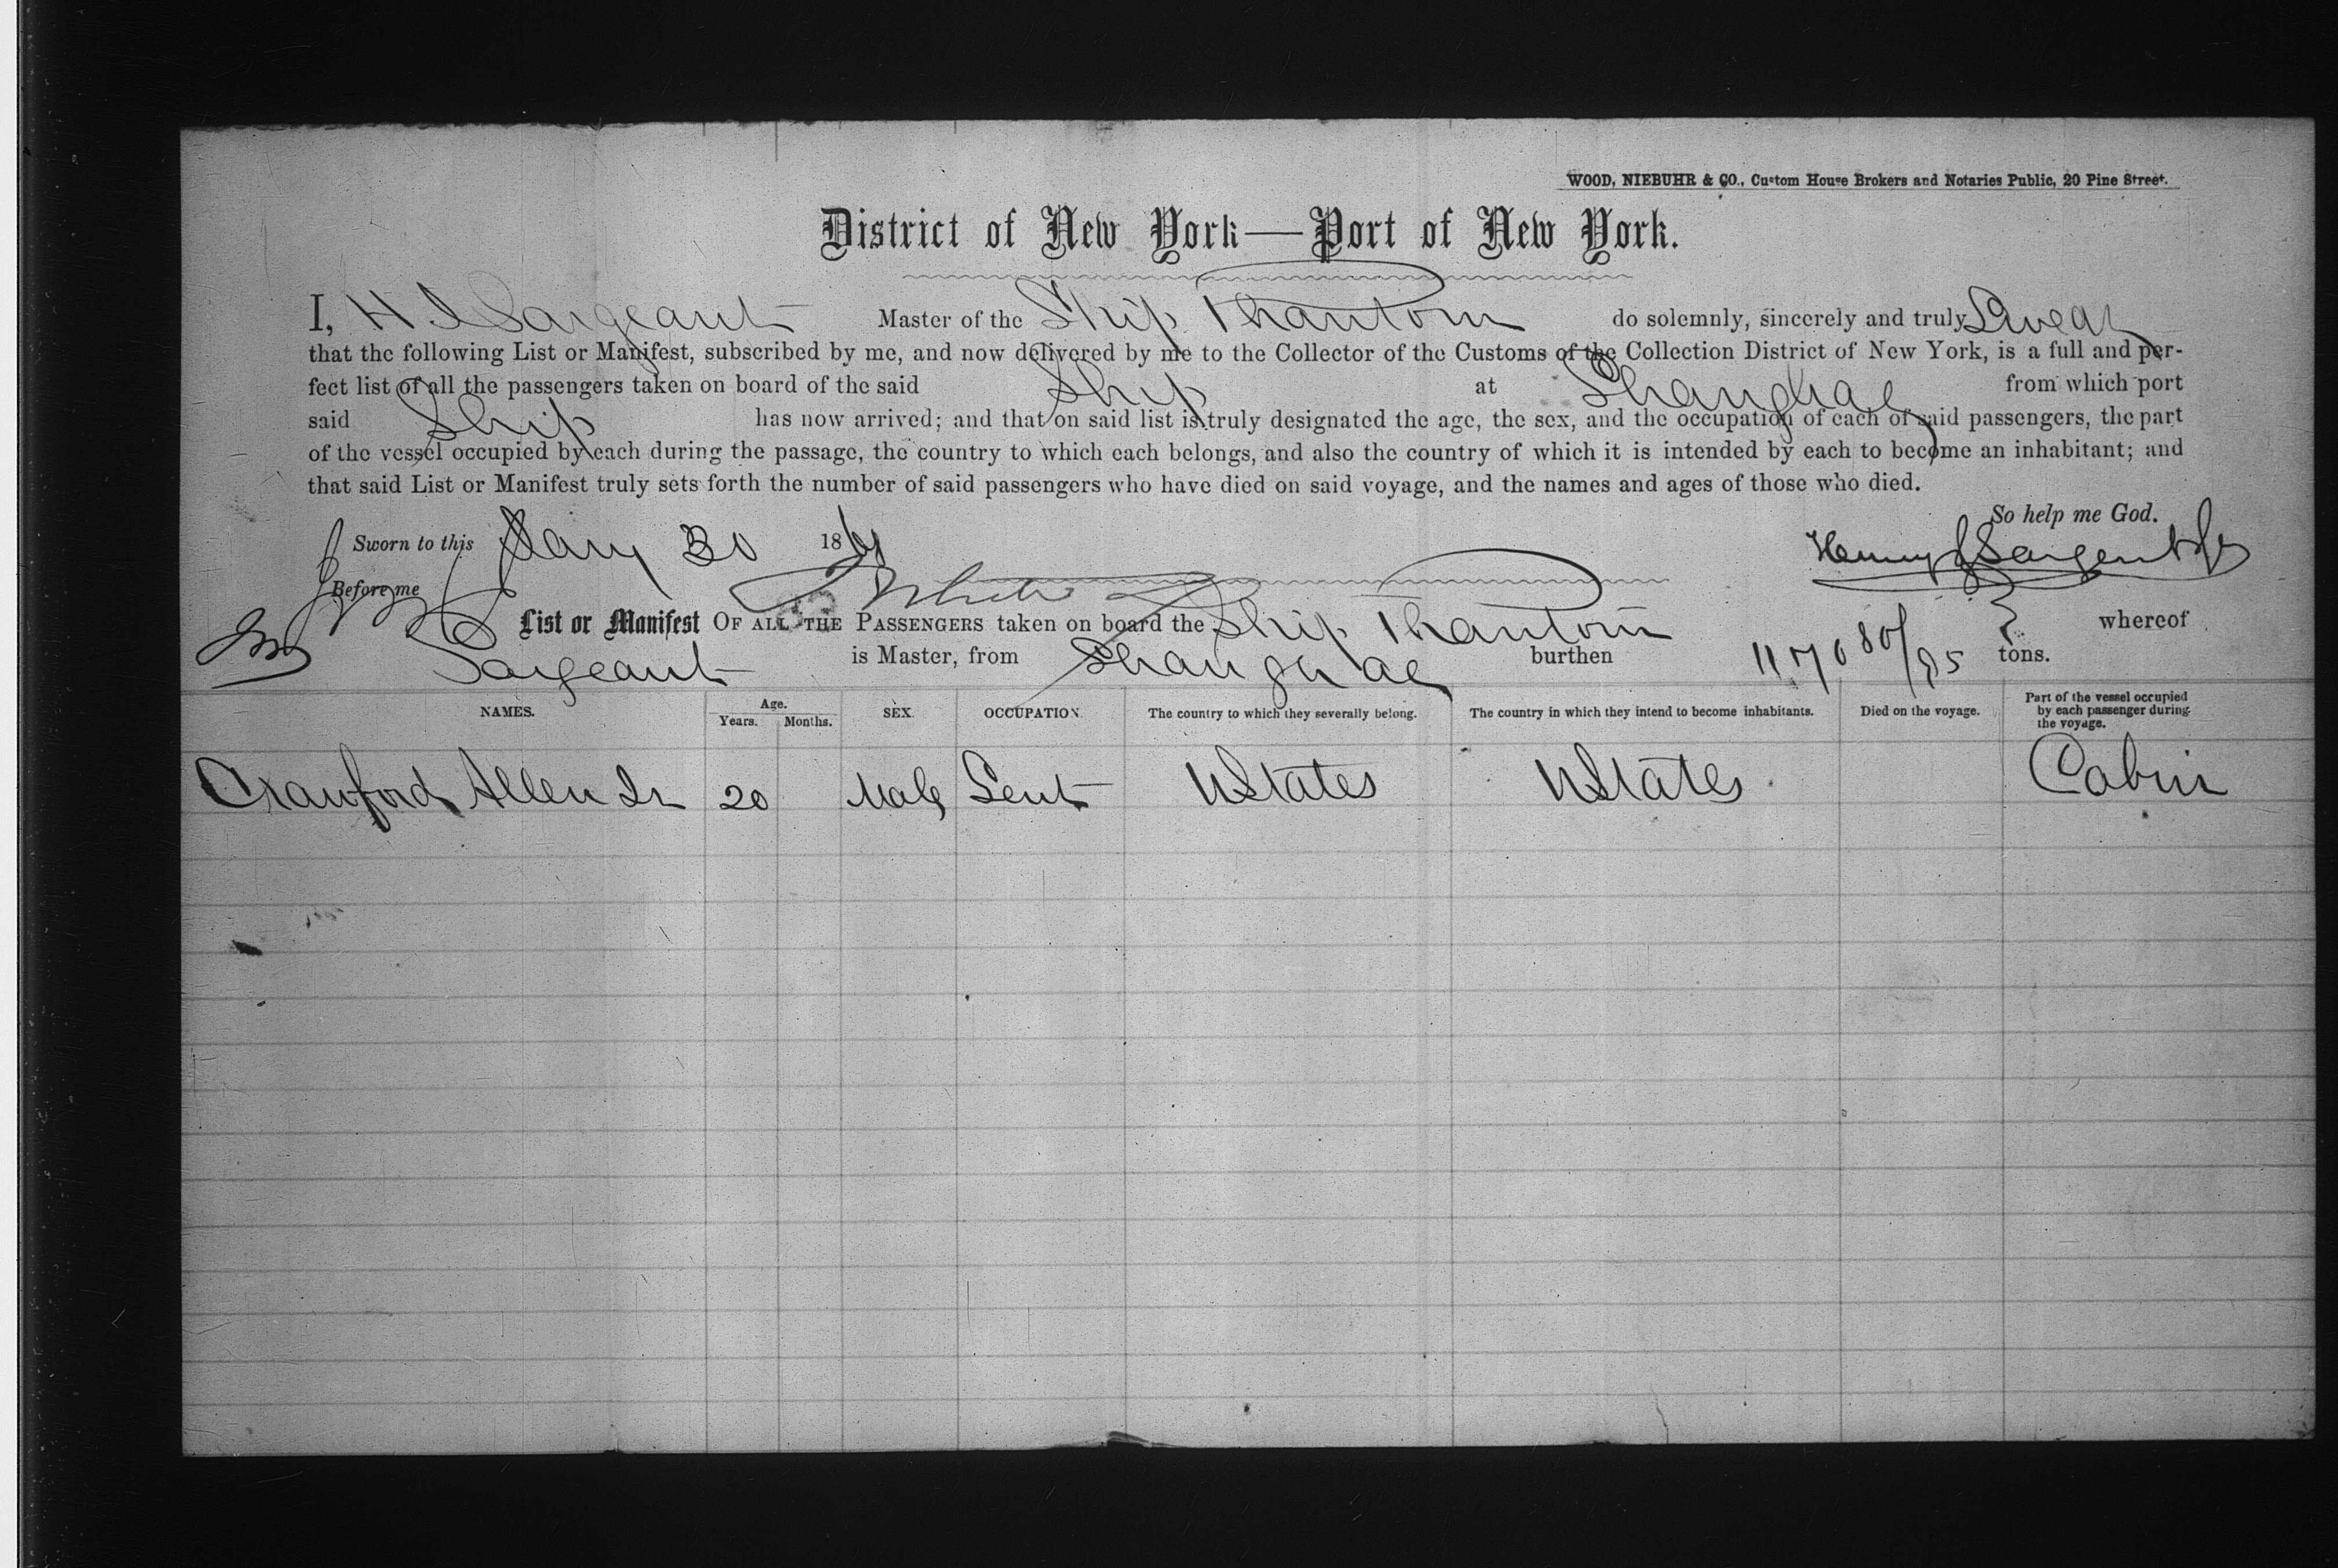 WOOD, NIEBUHR & CO., Custom House Brokers and Notaries Public, 20 Pine Street.
District of New York—Port of New York.
I, H J Sargeant Master of the Ship Phantom do solemnly, sincerely and truly Swear
that the following List or Manifest, subscribed by me, and now delivered by me to the Collector of the Customs of the Collection District of New York, is a full and per-
fect list of all the passengers taken on board of the said Ship at Shanghae from which port
said Ship has now arrived; and that on said list is truly designated the age, the sex, and the occupation of each of said passengers, the part
of the vessel occupied by each during the passage, the country to which each belongs, and also the country of which it is intended by each to become an inhabitant; and
that said List or Manifest truly sets forth the number of said passengers who have died on said voyage, and the names and ages of those who died.
So help me God.
Sworn to this Jany 30 1861 Henry J Sargent Jr
Before me
List or Manifest OF ALL THE PASSENGERS taken on board the Ship Phantom whereof
Sargeant is Master, from Shanghae burthen 1170 80/95 tons.
NAMES. Age. Years. Months. SEX. OCCUPATION. The country to which they severally belong. The country in which they intend to become inhabitants. Died on the voyage. Part of the vessel occupied by each passenger during the voyage.
Crawford Allen Jr 20 Male Gent UStates UStates Cabin